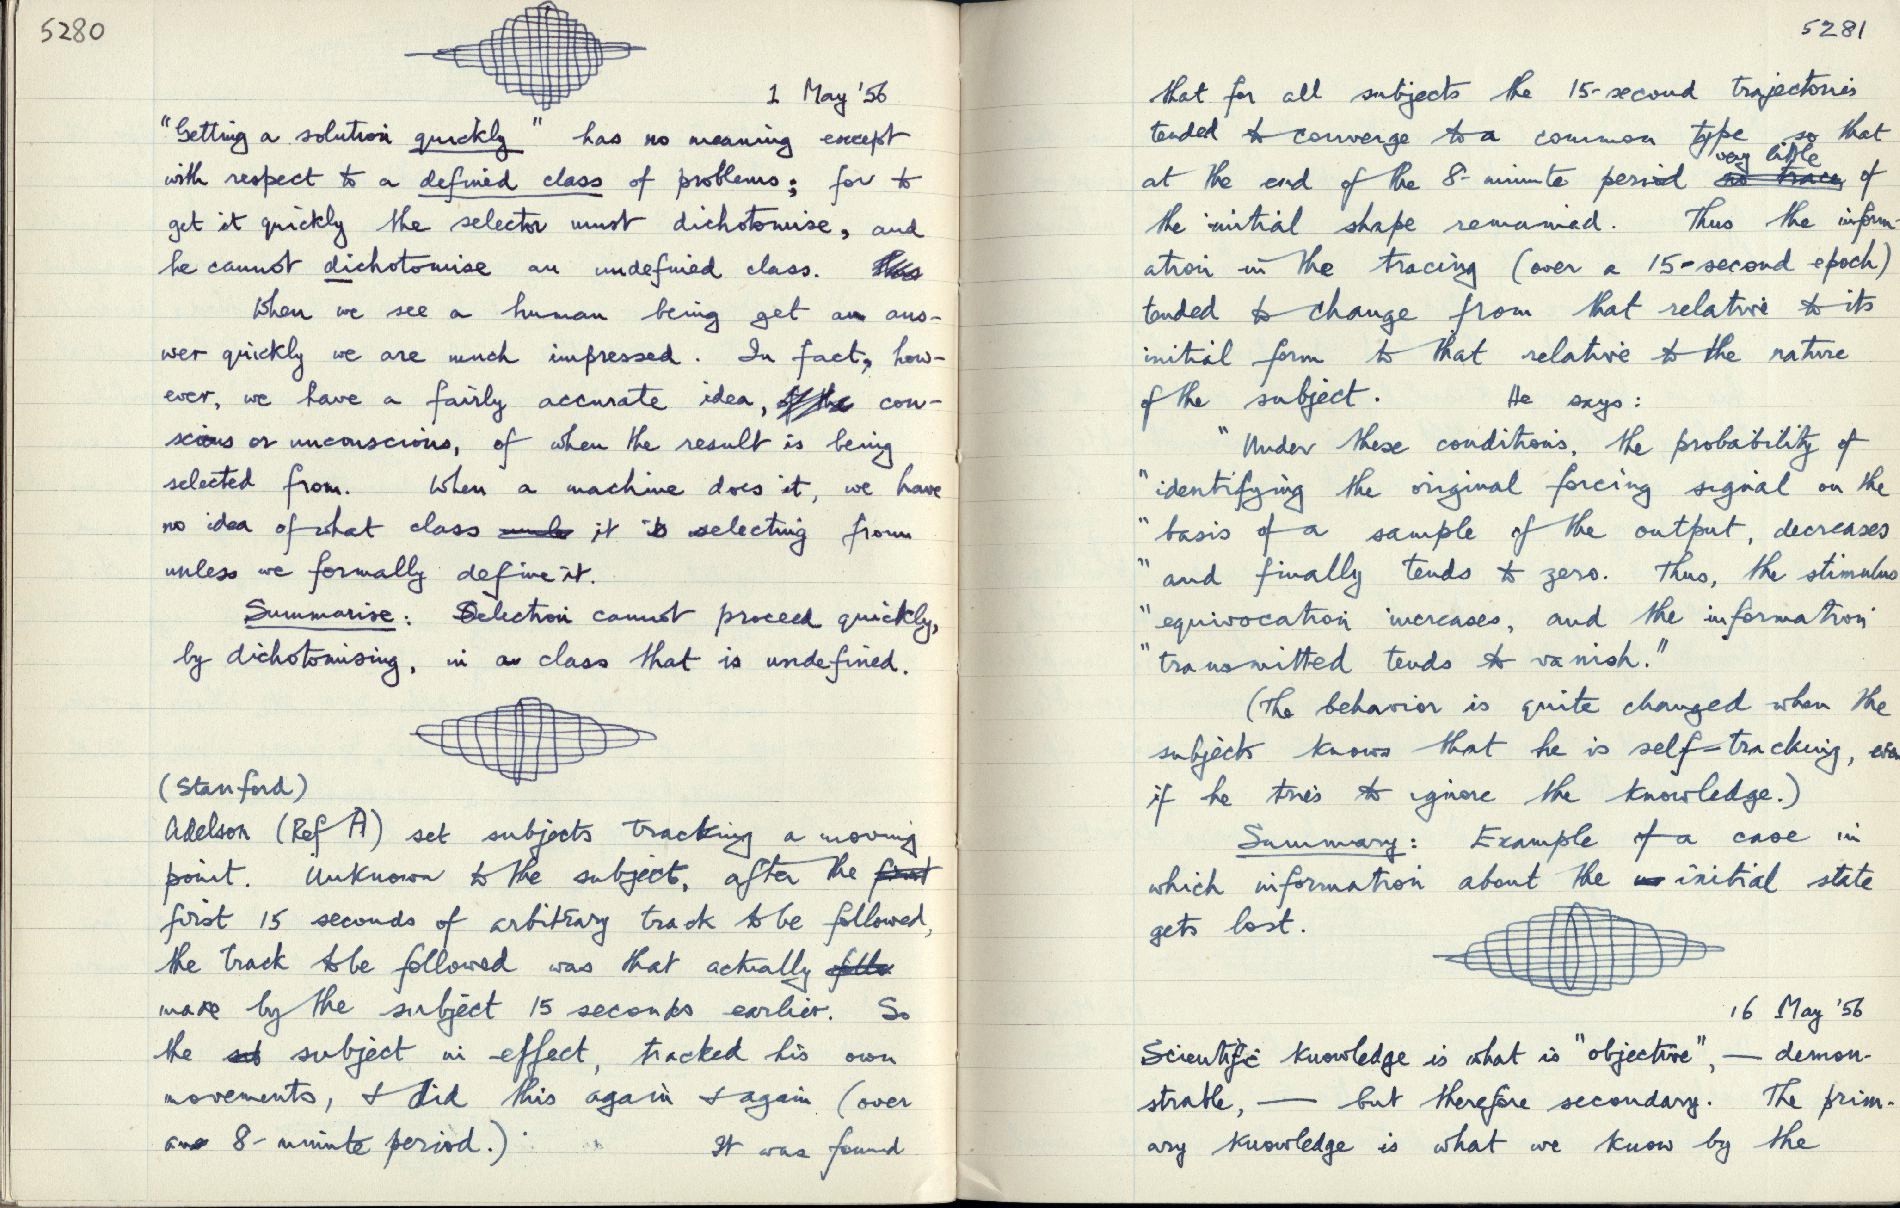 5280
1 May '56
"Getting a solution quickly" has no meaning except
with respect to a defined class of problems; for to
get it quickly the selector must dichotomise, and
he cannot dichotomise an undefined class.
When we see a human being get an ans-
wer quickly we are much impressed. In fact, how-
ever, we have a fairly accurate idea, con-
scious or unconscious, of when the result is being
selected from. When a machine does it, we have
no idea of what class it is selecting from
unless we formally define it.
Summarise: Selection cannot proceed quickly,
by dichotomising, in a class that is undefined.
(Stanford)
Adelson (Ref A) set subjects tracking a moving
point. Unknown to the subject, after the first
first 15 seconds of arbitrary track to be followed,
the track to be followed was that actually follo
made by the subject 15 seconds earlier. So
the subject in effect, tracked his own
movements, & did this again & again (over
an 8-minute period.) It was found
5281
that for all subjects the 15-second trajectories
tended to converge to a common type so that
at the end of the 8-minute period no trace very little of
the initial shape remained. Thus the inform-
ation in the tracing (over a 15-second epoch)
tended to change from that relative to its
initial form to that relative to the nature
of the subject. He says:
"Under these conditions, the probability of
"identifying the original forcing signal on the
"basis of a sample of the output, decreases
"and finally tends to zero. Thus, the stimulus
"equivocation increases, and the information
"transmitted tends to vanish."
(The behavior is quite changed when the
subject knows that he is self-tracking, even
if he tries to ignore the knowledge.)
Summary: Example of a case in
which information about the initial state
gets lost.
16 May '56
Scientific knowledge is what is "objective", — demon-
strable, — but therefore secondary. The prim-
ary knowledge is what we know by the